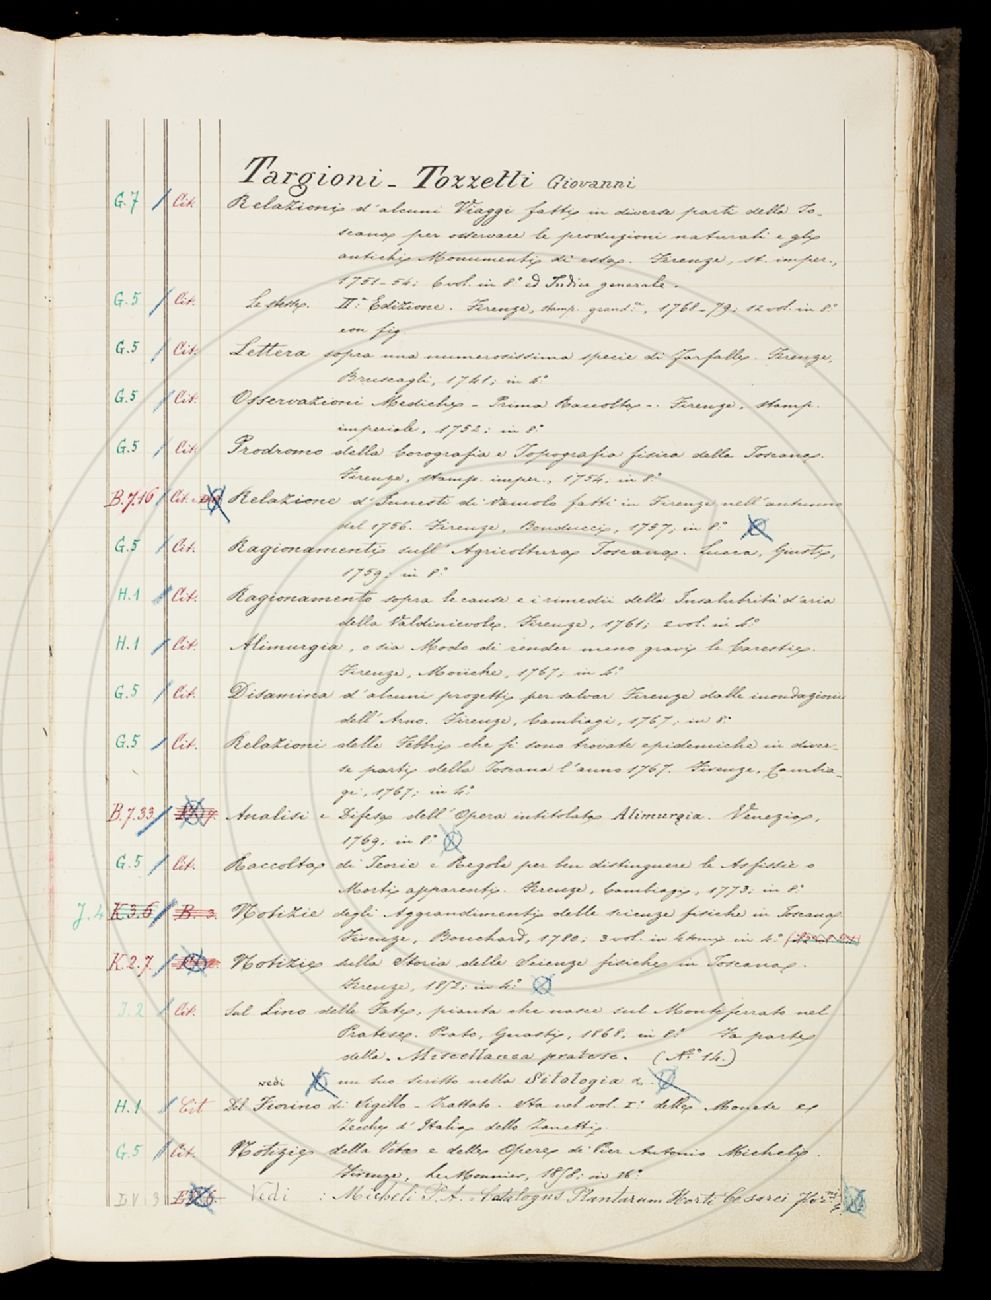 Targioni - Tozzetti Giovanni
G.7 Cit. Relazioni d'alcuni Viaggi fatti in diverse parti della To-
scana per osservare le produzioni naturali e gli
antichi Monumenti di essa. Firenze, st. imper.,
1751-54; 6 vol. in 8° ed Indice generale.
G.5 Cit. Le stesse. IIª Edizione. Firenze, stamp. grand., 1768-79; 12 vol. in 8°
con fig.
G.5 Cit. Lettera sopra una numerosissima specie di Farfalle. Firenze,
Bruscagli, 1741; in 4°
G.5 Cit. Osservazioni Mediche - Prima Raccolta -. Firenze, stamp.
imperiale, 1752; in 8°
G.5 Cit. Prodromo della Corografia e Topografia fisica della Toscana.
Firenze, stamp. imper., 1754; in 8°
B.7.16 Cit. Relazione d'Innesti di Vaiuolo fatti in Firenze nell'autunno
del 1756. Firenze, Bonducci, 1757, in 8°
G.5 Cit. Ragionamenti sull'Agricoltura Toscana. Lucca, Giusti,
1759; in 8°
H.1 Cit. Ragionamento sopra le cause e i rimedii della Insalubrità d'aria
della Valdinievole. Firenze, 1761; 2 vol. in 4°
H.1 Cit. Alimurgia, o sia Modo di render meno gravi le Carestie.
Firenze, Moücke, 1767; in 4°
G.5 Cit. Disamina d'alcuni progetti per salvar Firenze dalle inondazioni
dell'Arno. Firenze, Cambiagi, 1767; in 8°
G.5 Cit. Relazioni delle Febbri che si sono trovate epidemiche in diver-
se parti della Toscana l'anno 1767. Firenze, Cambia-
gi, 1767; in 4°
B.7.33. Analisi e Difesa dell'Opera intitolata Alimurgia. Venezia,
1769; in 8°
G.5 Cit. Raccolta di Teorie e Regole per ben distinguere le Asfissie o
Morti apparenti. Firenze, Cambiagi, 1773; in 8°
J.4 K 3.6 B. 3. Notizie degli Aggrandimenti delle scienze fisiche in Toscana
Firenze, Bouchard, 1780; 3 vol. in 4 tomi in 4°
K.2.7. Notizie sulla Storia delle Scienze fisiche in Toscana.
Firenze, 1852; in 4°
J.2 Cit. Sul Lino delle Fate, pianta che nasce sul Monteferrato nel
Pratese. Prato, Guasti, 1868, in 8° Fa parte
della Miscellanea pratese. (N.° 14.)
vedi un suo scritto nella Sitologia &
H.1 Cit Del Fiorino di Sigillo - Trattato. Sta nel vol. I° delle Monete e
Zecche d'Italia dello Zanetti.
G.5 Cit. Notizie della Vita e delle Opere di Pier Antonio Micheli.
Firenze, Le Monnier, 1858; in 16°
Vedi : Micheli P.A. Catalogus Plantarum Horti Cesarei